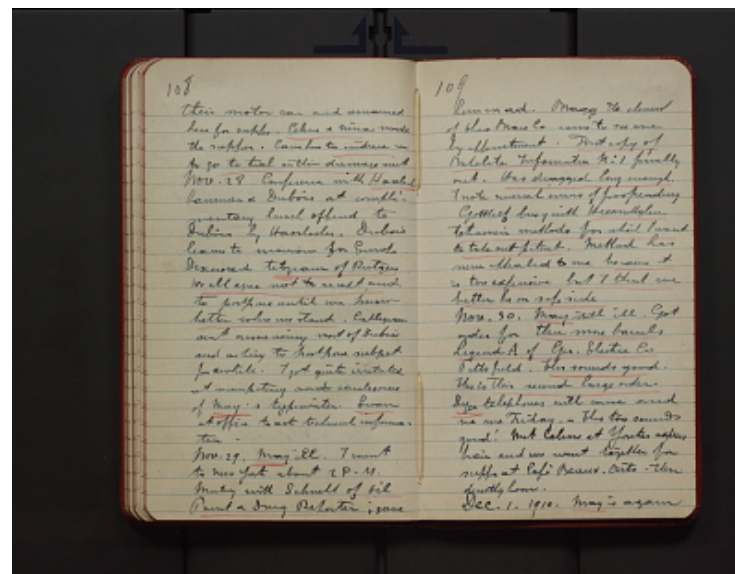 108
their motor car and remained
here for supper. Celine & Nina made
the supper. Came here to induce me
to go to trial within damage suit
Nov. 28 Conference with Hasslacher,
and Dubois at compli-
mentary lunch offered to
Dubois by Hasslacher. Dubois
leaves to morrow for Europe
Discussed telegram of Rutgers
We all agree not to react and
to postpone until we know
better where we stand. Callegram
sent announcing visit of Dubois
and asking to postpone subject
for awhile. I got quite irritated
at incompetency and carelessness
of May's typewriter. Swan
at office to act technical informa-
tion.
Nov. 29. May ill. I went
to New York about 2 P.M.
Meeting with Schnell of Oil
Paint & Drug Reporter; gave
109
him an ad. Moeser the chemist
of Shoe Co came to see me
by appointment. First copy of
Bakelite Information No. 1 finally
out. Has dragged long enough.
I note several errors of proofreading
Gottlieb busy with
methods for which I want
to take out patent. Method has
never appealed to me because it
is too expensive, but I think we
better be on safe side
Nov. 30. May still ill. Got
order for three more barrels
Liquid A of Gen. Electric Co
Pittsfield. This sounds good.
This is their second large order.
telephones will come and
see me Friday. This too sounds
good! Met Celine at Yonkers express
train and we went together for
supper at Café Beaux-Arts. Then
directly home.
Dec. 1. 1910. May is again